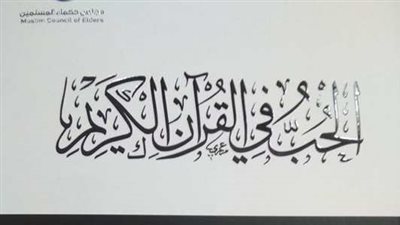 مجلس حكماء المسلمين
Muslim Council of Elders
الحُبُّ في القُرآن الكَريم